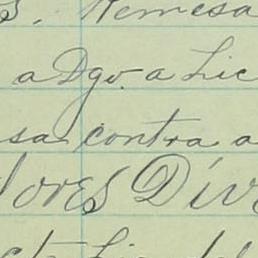 s. Remesa
a Dgo. a Lic
sa contra a
lores Div